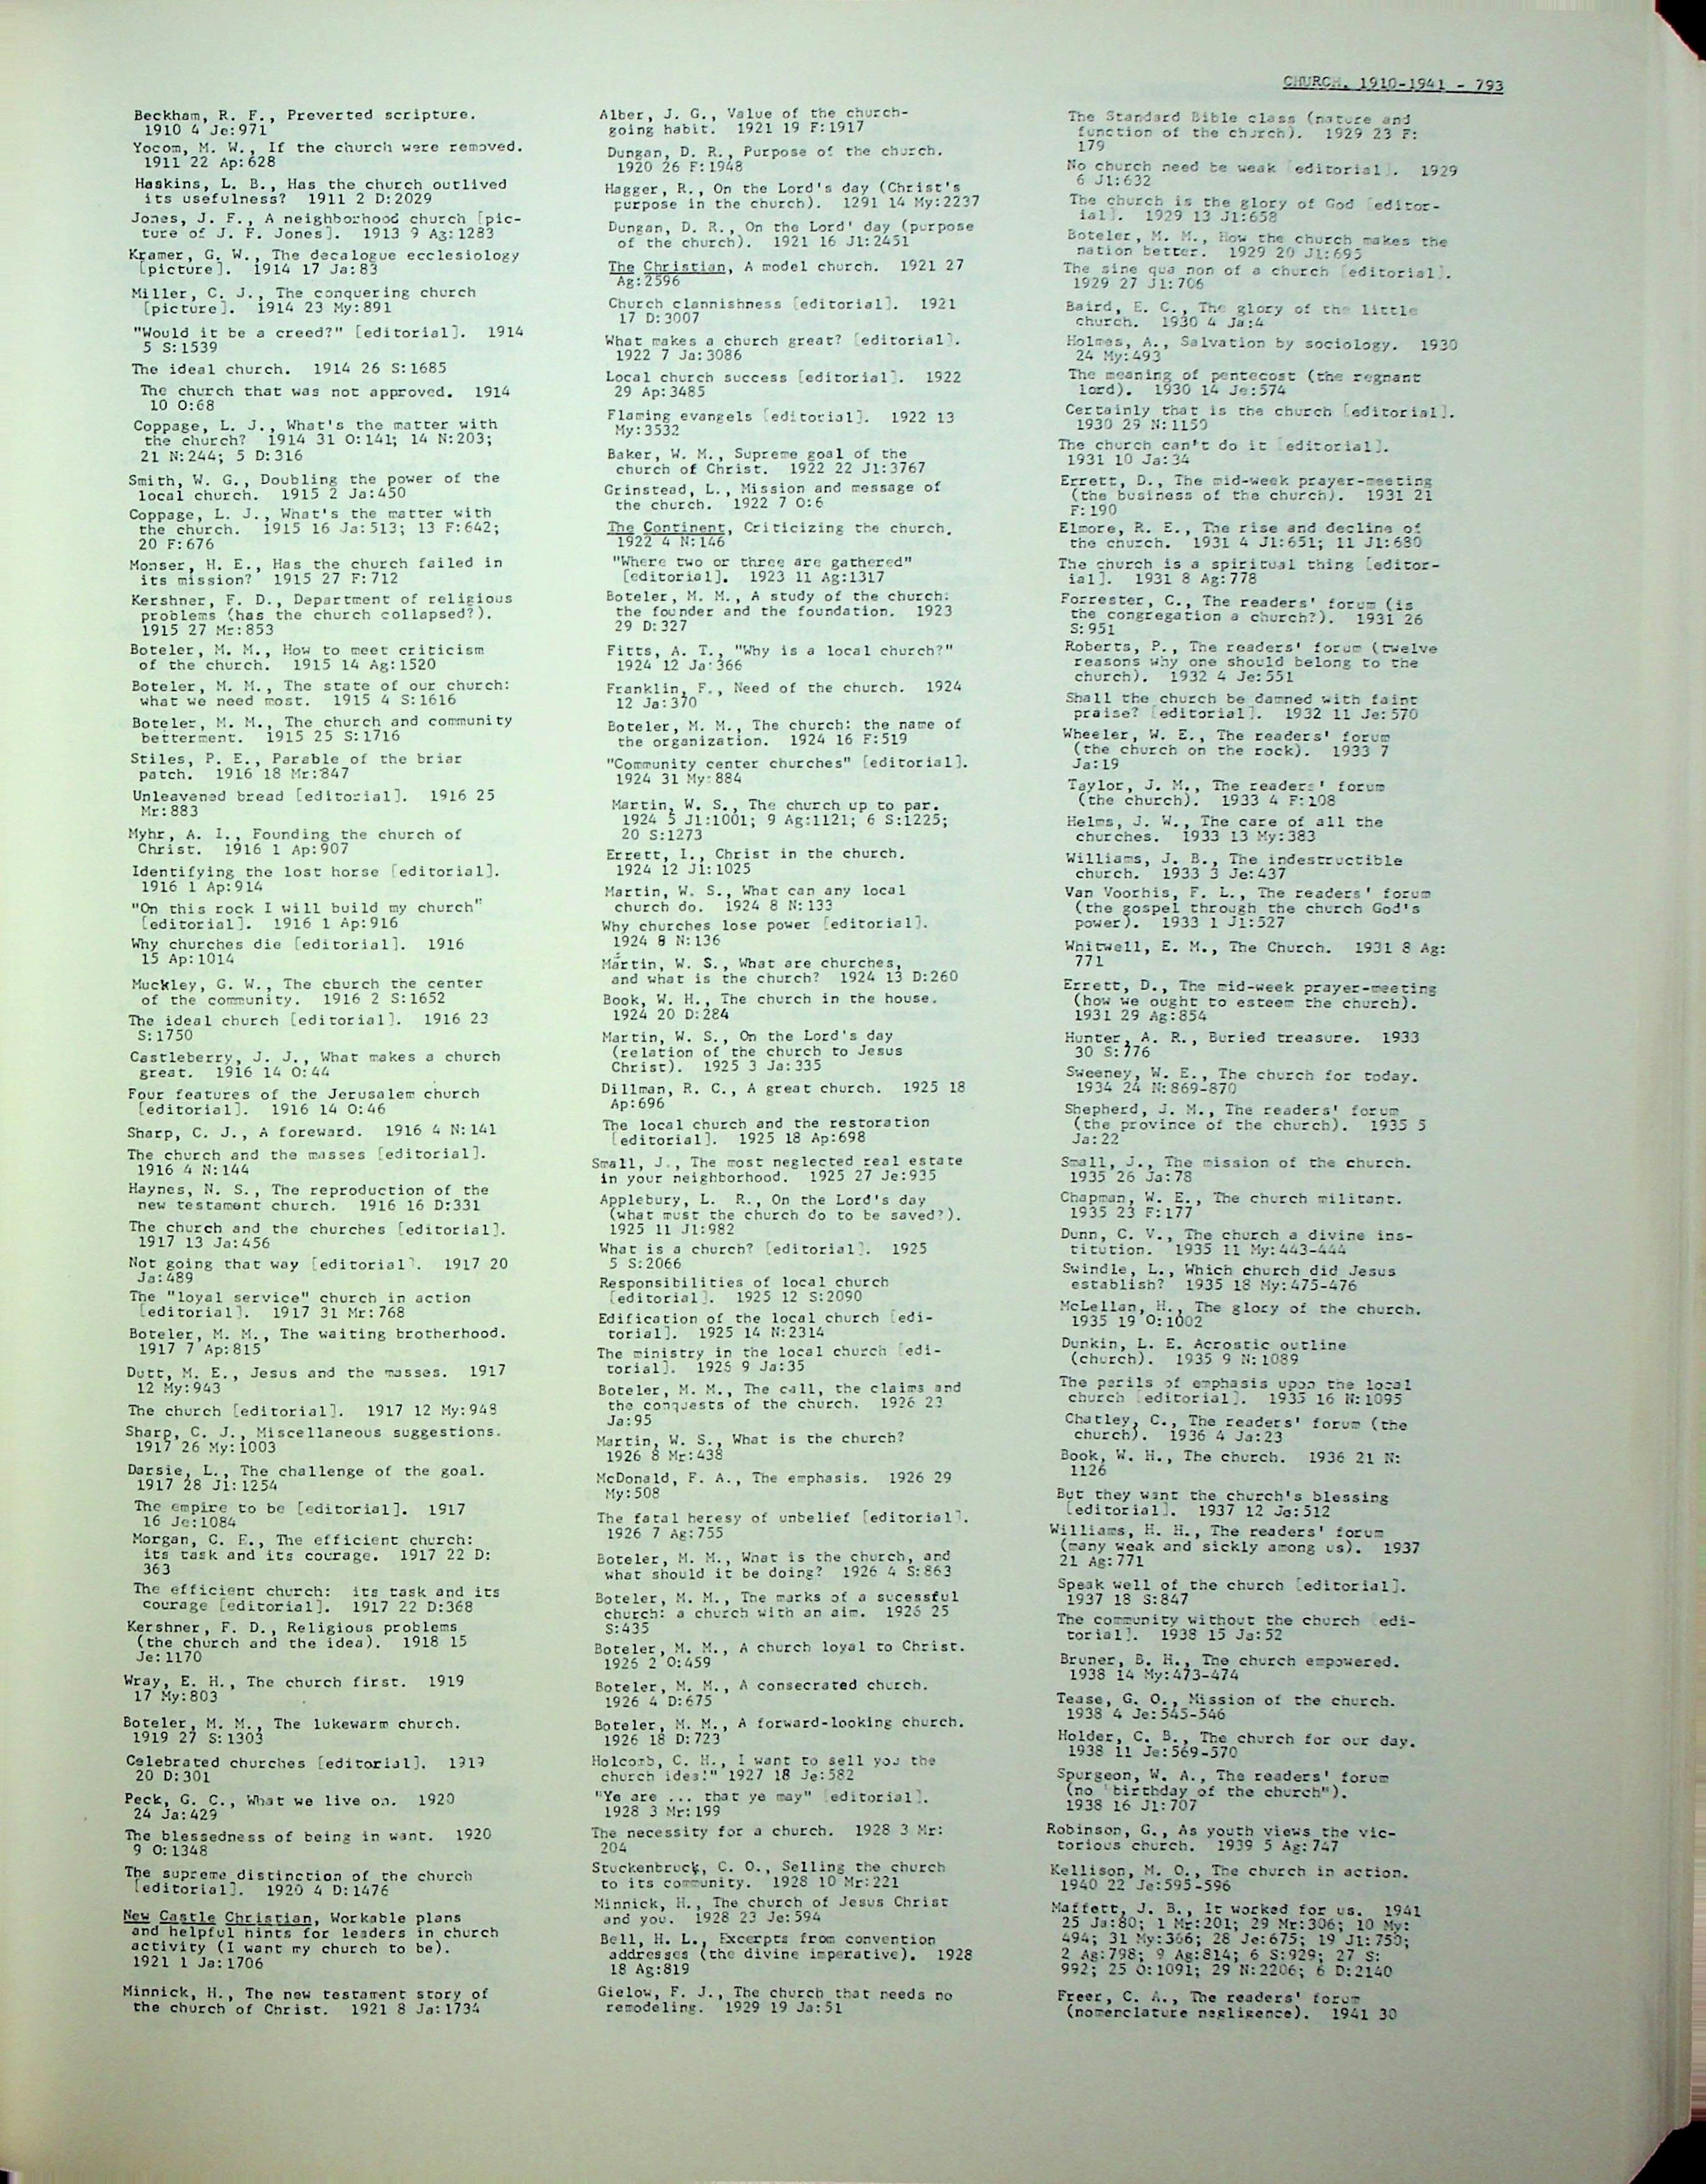 CHURCH, 1910-1941 - 793
Beckham, R. F., Preverted scripture.
1910 4 Je:971
Yocom, M. W., If the church were removed.
1911 22 Ap:628
Haskins, L. B., Has the church outlived
its usefulness? 1911 2 D:2029
Jones, J. F., A neighborhood church [pic-
ture of J. F. Jones]. 1913 9 Ag:1283
Kramer, G. W., The decalogue ecclesiology
[picture]. 1914 17 Ja:83
Miller, C. J., The conquering church
[picture]. 1914 23 My:891
"Would it be a creed?" [editorial]. 1914
5 S:1539
The ideal church. 1914 26 S:1685
The church that was not approved. 1914
10 O:68
Coppage, L. J., What's the matter with
the church? 1914 31 O:141; 14 N:203;
21 N:244; 5 D:316
Smith, W. G., Doubling the power of the
local church. 1915 2 Ja:450
Coppage, L. J., What's the matter with
the church. 1915 16 Ja:513; 13 F:642;
20 F:676
Monser, H. E., Has the church failed in
its mission? 1915 27 F:712
Kershner, F. D., Department of religious
problems (has the church collapsed?).
1915 27 Mr:853
Boteler, M. M., How to meet criticism
of the church. 1915 14 Ag:1520
Boteler, M. M., The state of our church:
what we need most. 1915 4 S:1616
Boteler, M. M., The church and community
betterment. 1915 25 S:1716
Stiles, P. E., Parable of the briar
patch. 1916 18 Mr:847
Unleavened bread [editorial]. 1916 25
Mr:883
Myhr, A. I., Founding the church of
Christ. 1916 1 Ap:907
Identifying the lost horse [editorial].
1916 1 Ap:914
"On this rock I will build my church"
[editorial]. 1916 1 Ap:916
Why churches die [editorial]. 1916
15 Ap:1014
Muckley, G. W., The church the center
of the community. 1916 2 S:1652
The ideal church [editorial]. 1916 23
S:1750
Castleberry, J. J., What makes a church
great. 1916 14 O:44
Four features of the Jerusalem church
[editorial]. 1916 14 O:46
Sharp, C. J., A foreward. 1916 4 N:141
The church and the masses [editorial].
1916 4 N:144
Haynes, N. S., The reproduction of the
new testament church. 1916 16 D:331
The church and the churches [editorial].
1917 13 Ja:456
Not going that way [editorial]. 1917 20
Ja:489
The "loyal service" church in action
[editorial]. 1917 31 Mr:768
Boteler, M. M., The waiting brotherhood.
1917 7 Ap:815
Dutt, M. E., Jesus and the masses. 1917
12 My:943
The church [editorial]. 1917 12 My:948
Sharp, C. J., Miscellaneous suggestions.
1917 26 My:1003
Darsie, L., The challenge of the goal.
1917 28 Jl:1254
The empire to be [editorial]. 1917
16 Je:1084
Morgan, C. E., The efficient church:
its task and its courage. 1917 22 D:
363
The efficient church: its task and its
courage [editorial]. 1917 22 D:368
Kershner, F. D., Religious problems
(the church and the idea). 1918 15
Je:1170
Wray, E. H., The church first. 1919
17 My:803
Boteler, M. M., The lukewarm church.
1919 27 S:1303
Celebrated churches [editorial]. 1919
20 D:301
Peck, G. C., What we live on. 1920
24 Ja:429
The blessedness of being in want. 1920
9 O:1348
The supreme distinction of the church
[editorial]. 1920 4 D:1476
New Castle Christian, Workable plans
and helpful hints for leaders in church
activity (I want my church to be).
1921 1 Ja:1706
Minnick, H., The new testament story of
the church of Christ. 1921 8 Ja:1734
Alber, J. G., Value of the church-
going habit. 1921 19 F:1917
Dungan, D. R., Purpose of the church.
1920 26 F:1948
Hagger, R., On the Lord's day (Christ's
purpose in the church). 1291 14 My:2237
Dungan, D. R., On the Lord' day (purpose
of the church). 1921 16 Jl:2451
The Christian, A model church. 1921 27
Ag:2596
Church clannishness [editorial]. 1921
17 D:3007
What makes a church great? [editorial].
1922 7 Ja:3086
Local church success [editorial]. 1922
29 Ap:3485
Flaming evangels [editorial]. 1922 13
My:3532
Baker, W. M., Supreme goal of the
church of Christ. 1922 22 Jl:3767
Grinstead, L., Mission and message of
the church. 1922 7 O:6
The Continent, Criticizing the church.
1922 4 N:146
"Where two or three are gathered"
[editorial]. 1923 11 Ag:1317
Boteler, M. M., A study of the church:
the founder and the foundation. 1923
29 D:327
Fitts, A. T., "Why is a local church?"
1924 12 Ja:366
Franklin, F., Need of the church. 1924
12 Ja:370
Boteler, M. M., The church: the name of
the organization. 1924 16 F:519
"Community center churches" [editorial].
1924 31 My:884
Martin, W. S., The church up to par.
1924 5 Jl:1001; 9 Ag:1121; 6 S:1225;
20 S:1273
Errett, I., Christ in the church.
1924 12 Jl:1025
Martin, W. S., What can any local
church do. 1924 8 N:133
Why churches lose power [editorial].
1924 8 N:136
Martin, W. S., What are churches,
and what is the church? 1924 13 D:260
Book, W. H., The church in the house.
1924 20 D:284
Martin, W. S., On the Lord's day
(relation of the church to Jesus
Christ). 1925 3 Ja:335
Dillman, R. C., A great church. 1925 18
Ap:696
The local church and the restoration
[editorial]. 1925 18 Ap:698
Small, J., The most neglected real estate
in your neighborhood. 1925 27 Je:935
Applebury, L. R., On the Lord's day
(what must the church do to be saved?).
1925 11 Jl:982
What is a church? [editorial]. 1925
5 S:2066
Responsibilities of local church
[editorial]. 1925 12 S:2090
Edification of the local church [edi-
torial]. 1925 14 N:2314
The ministry in the local church [edi-
torial]. 1926 9 Ja:35
Boteler, M. M., The call, the claims and
the conquests of the church. 1926 23
Ja:95
Martin, W. S., What is the church?
1926 8 Mr:438
McDonald, F. A., The emphasis. 1926 29
My:508
The fatal heresy of unbelief [editorial].
1926 7 Ag:755
Boteler, M. M., What is the church, and
what should it be doing? 1926 4 S:863
Boteler, M. M., The marks of a sucessful
church: a church with an aim. 1926 25
S:435
Boteler, M. M., A church loyal to Christ.
1926 2 O:459
Boteler, M. M., A consecrated church.
1926 4 D:675
Boteler, M. M., A forward-looking church.
1926 18 D:723
Holcomb, C. H., I want to sell you the
church idea!" 1927 18 Je:582
"Ye are ... that ye may" [editorial].
1928 3 Mr:199
The necessity for a church. 1928 3 Mr:
204
Stuckenbruck, C. O., Selling the church
to its community. 1928 10 Mr:221
Minnick, H., The church of Jesus Christ
and you. 1928 23 Je:594
Bell, H. L., Excerpts from convention
addresses (the divine imperative). 1928
18 Ag:819
Gielow, F. J., The church that needs no
remodeling. 1929 19 Ja:51
The Standard Bible class (nature and
function of the church). 1929 23 F:
179
No church need be weak [editorial]. 1929
6 Jl:632
The church is the glory of God [editor-
ial]. 1929 13 Jl:658
Boteler, M. M., How the church makes the
nation better. 1929 20 Jl:695
The sine qua non of a church [editorial].
1929 27 Jl:706
Baird, E. C., The glory of the little
church. 1930 4 Ja:4
Holmes, A., Salvation by sociology. 1930
24 My:493
The meaning of pentecost (the regnant
lord). 1930 14 Je:574
Certainly that is the church [editorial].
1930 29 N:1159
The church can't do it [editorial].
1931 10 Ja:34
Errett, D., The mid-week prayer-meeting
(the business of the church). 1931 21
F:190
Elmore, R. E., The rise and decline of
the church. 1931 4 Jl:651; 11 Jl:680
The church is a spiritual thing [editor-
ial]. 1931 8 Ag:778
Forrester, C., The readers' forum (is
the congregation a church?). 1931 26
S:951
Roberts, P., The readers' forum (twelve
reasons why one should belong to the
church). 1932 4 Je:551
Shall the church be damned with faint
praise? [editorial]. 1932 11 Je:570
Wheeler, W. E., The readers' forum
(the church on the rock). 1933 7
Ja:19
Taylor, J. M., The readers' forum
(the church). 1933 4 F:108
Helms, J. W., The care of all the
churches. 1933 13 My:383
Williams, J. B., The indestructible
church. 1933 3 Je:437
Van Voorhis, F. L., The readers' forum
(the gospel through the church God's
power). 1933 1 Jl:527
Whitwell, E. M., The Church. 1931 8 Ag:
771
Errett, D., The mid-week prayer-meeting
(how we ought to esteem the church).
1931 29 Ag:854
Hunter, A. R., Buried treasure. 1933
30 S:776
Sweeney, W. E., The church for today.
1934 24 N:869-870
Shepherd, J. M., The readers' forum
(the province of the church). 1935 5
Ja:22
Small, J., The mission of the church.
1935 26 Ja:78
Chapman, W. E., The church militant.
1935 23 F:177
Dunn, C. V., The church a divine ins-
titution. 1935 11 My:443-444
Swindle, L., Which church did Jesus
establish? 1935 18 My:475-476
McLellan, H., The glory of the church.
1935 19 O:1002
Dunkin, L. E. Acrostic outline
(church). 1935 9 N:1089
The perils of emphasis upon the local
church [editorial]. 1935 16 N:1095
Chatley, C., The readers' forum (the
church). 1936 4 Ja:23
Book, W. H., The church. 1936 21 N:
1126
But they want the church's blessing
[editorial]. 1937 12 Je:512
Williams, H. H., The readers' forum
(many weak and sickly among us). 1937
21 Ag:771
Speak well of the church [editorial].
1937 18 S:847
The community without the church [edi-
torial]. 1938 15 Ja:52
Bruner, B. H., The church empowered.
1938 14 My:473-474
Tease, G. O., Mission of the church.
1938 4 Je:545-546
Holder, C. B., The church for our day.
1938 11 Je:569-570
Spurgeon, W. A., The readers' forum
(no "birthday of the church").
1938 16 Jl:707
Robinson, G., As youth views the vic-
torious church. 1939 5 Ag:747
Kellison, M. O., The church in action.
1940 22 Je:595-596
Maffett, J. B., It worked for us. 1941
25 Ja:80; 1 Mr:201; 29 Mr:306; 10 My:
494; 31 My:366; 28 Je:675; 19 Jl:750;
2 Ag:798; 9 Ag:814; 6 S:929; 27 S:
992; 25 O:1091; 29 N:2206; 6 D:2140
Freer, C. A., The readers' forum
(nomenclature negligence). 1941 30